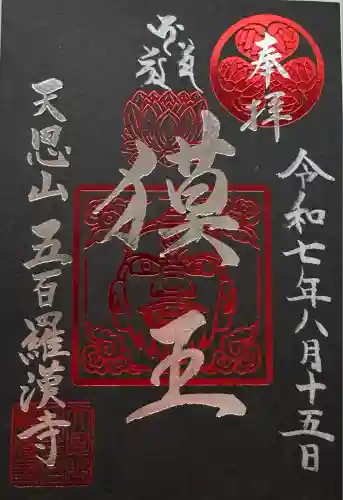 奉拝
令和七年八月十五日
獏王
天恩山 五百羅漢寺